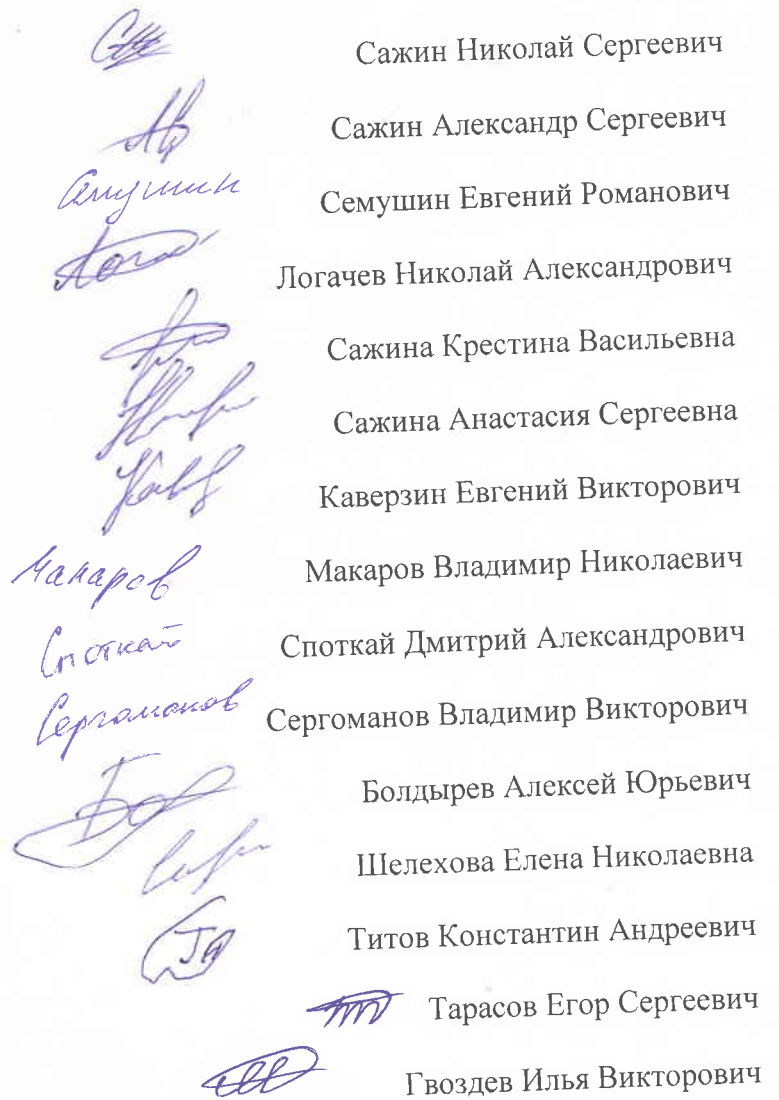 Сажин Николай Сергеевич
Сажин Александр Сергеевич
Семушин Семушин Евгений Романович
Логачев Николай Александрович
Сажина Крестина Васильевна
Сажина Анастасия Сергеевна
Каверзин Евгений Викторович
Макаров Макаров Владимир Николаевич
Споткай Споткай Дмитрий Александрович
Сергоманов Сергоманов Владимир Викторович
Болдырев Алексей Юрьевич
Шелехова Елена Николаевна
Титов Константин Андреевич
Тарасов Егор Сергеевич
Гвоздев Илья Викторович